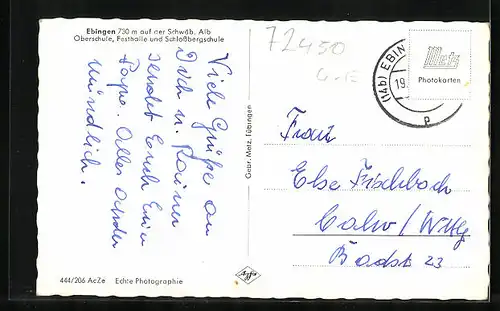 Ebingen 730 m auf der Schwäb. Alb
Oberschule, Festhalle und Schloßbergschule
Viele Grüße an
Dich u. Rainer
sendet Euch Euer
Papa. Alles andere
mündlich.
444/206 AcZe Echte Photographie
Gebr. Metz, Tübingen
effs
72450
(14b) EBIN
19.
p
Metz
Photokarten
Frau
Else Frischbach
Calw/Wttg
Badstr 23